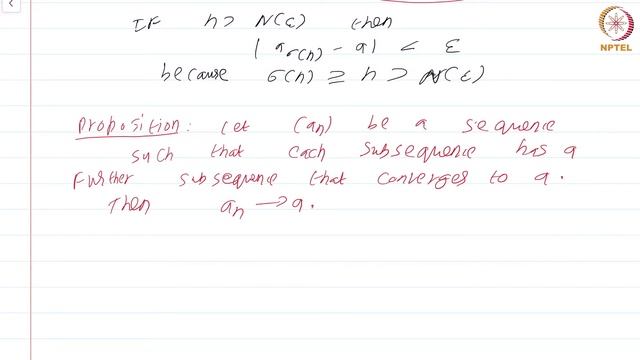 IF n > N(ε) then
| a_σ(n) - a| < ε
because σ(n) ≥ n > N(ε)
NPTEL
Proposition: Let (an) be a sequence
such that each subsequence has a
Further subsequence that converges to a.
Then an → a.